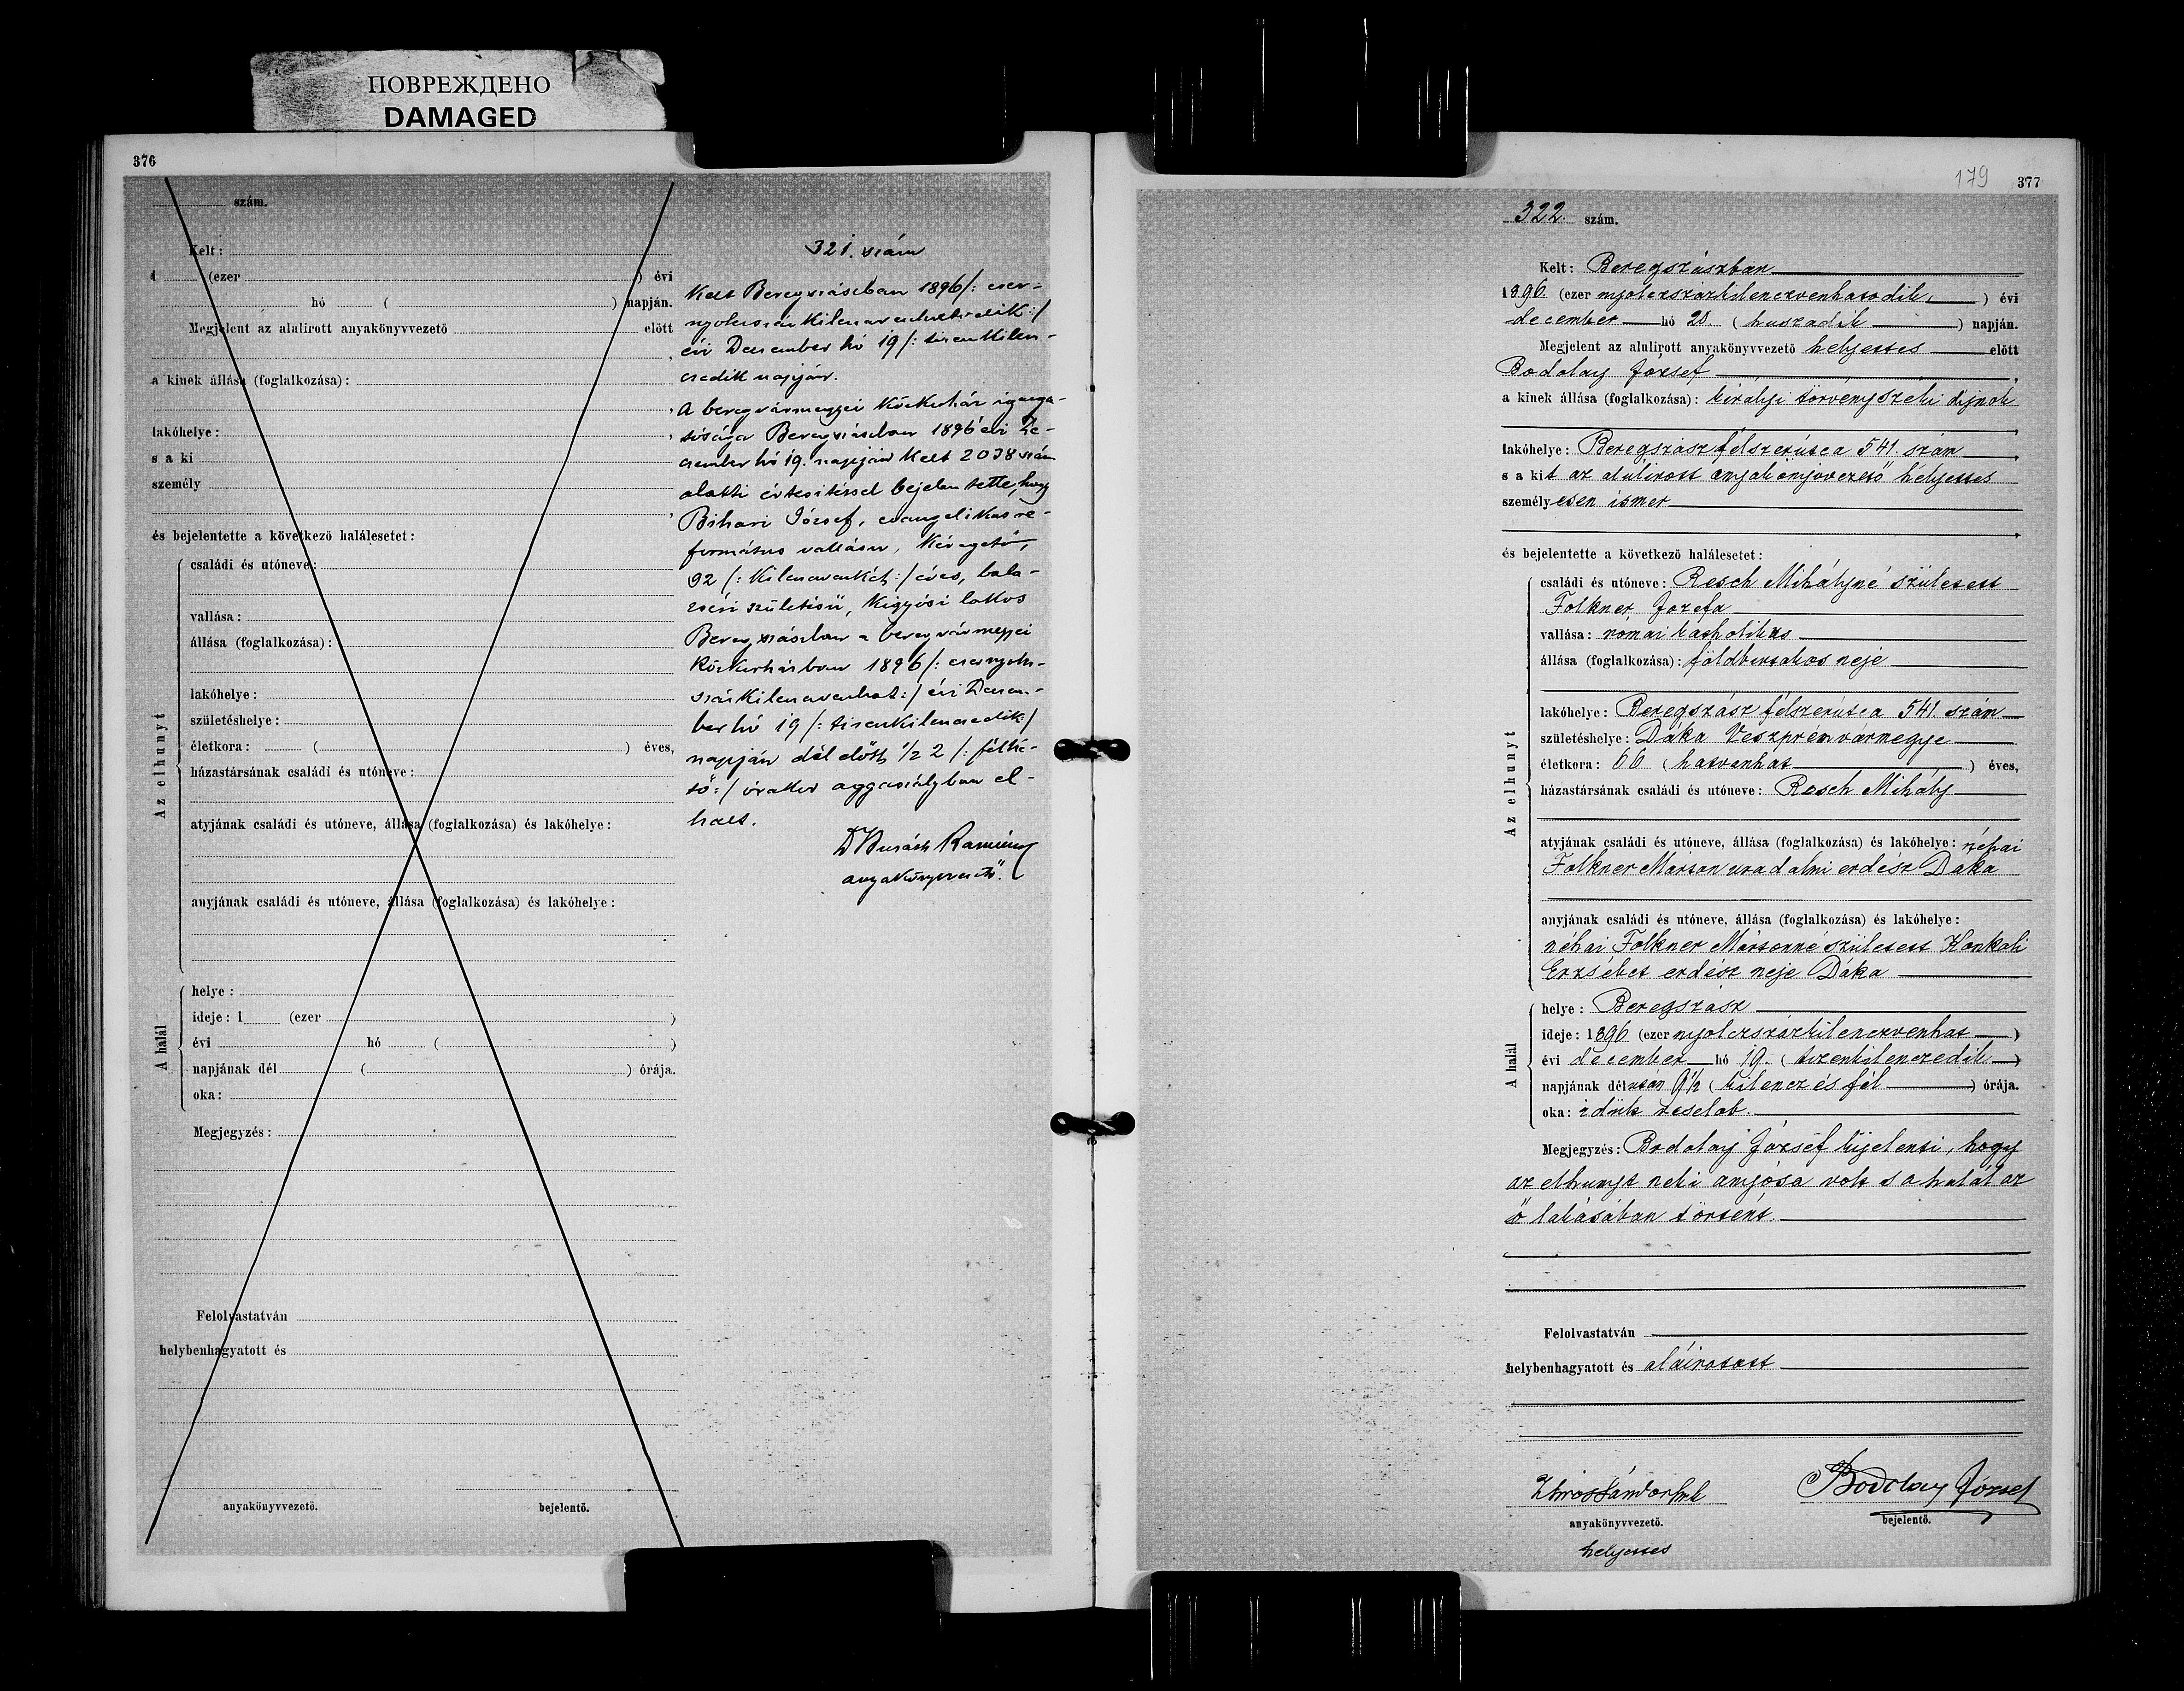 ПОВРЕЖДЕНО
DAMAGED
376
szám.
Kelt:
1 (ezer ) évi
hó ( ) napján.
Megjelent az alulirott anyakönyvvezető előtt
,
a kinek állása (foglalkozása):
,
lakóhelye: ,
s a ki
személy
,
és bejelentette a következő halálesetet:
Az elhunyt
családi és utóneve:
vallása:
állása (foglalkozása):
lakóhelye:
születéshelye:
életkora: ( ) éves,
házastársának családi és utóneve:
atyjának családi és utóneve, állása (foglalkozása) és lakóhelye:
anyjának családi és utóneve, állása (foglalkozása) és lakóhelye:
A halál
helye:
ideje: 1 (ezer )
évi hó ( )
napjának dél ( ) órája.
oka:
Megjegyzés:
Felolvastatván
helybenhagyatott és
anyakönyvvezető. bejelentő.
321. szám
Kelt Beregszászban 1896 /: ezer-
nyolczszázkilenczvenhatodik :/
évi Deczember hó 19 /: tizenkilen-
czedik napján.
A beregvármegyei közkórház igazga-
tósága Beregszászban 1896 évi De-
czember hó 19. napján kelt 2038 szám
alatti értesitéssel bejelentette, hogy
Bihari József, evangelikus re-
formátus vallásu, kéregető,
92 /: kilenczvenkét :/ éves, bala-
zséri születésü, Kigyósi lakos
Beregszászban a beregvármegyei
közkórházban 1896 /: ezernyolcz-
százkilenczvenhat :/ évi Deczem-
ber hó 19 /: tizenkilenczedik /
napján dél előtt 1/2 2 /: félket-
tő :/ órakor aggaszályban el-
halt.
anyakönyvvezető.
179 377
322. szám.
Kelt: Beregszászban
1896. (ezer nyolczszázkilenczvenhatodik) évi
december hó 20. (huszadik) napján.
Megjelent az alulirott anyakönyvvezető helyettes előtt
Bodolay József ,
a kinek állása (foglalkozása): királyi törvényszéki dijnok
,
lakóhelye: Beregszász félszerútcza 541. szám ,
s a kit az alulirott anyakönyvvezető helyettes
személyesen ismer
,
és bejelentette a következő halálesetet:
Az elhunyt
családi és utóneve: Resch Mihályné született
Folkner Jozefa
vallása: római katholikus
állása (foglalkozása): földbirtokos neje
lakóhelye: Beregszász félszerútcza 541. szám
születéshelye: Dáka Veszprém vármegye
életkora: 66 (hatvanhat) éves,
házastársának családi és utóneve: Resch Mihály
atyjának családi és utóneve, állása (foglalkozása) és lakóhelye: néhai
Folkner Márton uradalmi erdész Dáka
anyjának családi és utóneve, állása (foglalkozása) és lakóhelye:
néhai Folkner Mártonné született Konkoli
Erzsébet erdész neje Dáka
A halál
helye: Beregszász
ideje: 1896 (ezer nyolczszázkilenczvenhat)
évi december hó 19. (tizenkilenczedik)
napjának délután 9 1/2 (kilencz és fél) órája.
oka: idült veselob.
Megjegyzés: Bodolay József kijelenti, hogy
az elhunyt neki anyósa volt s a halál az
ő lakásában történt.
Felolvastatván
helybenhagyatott és aláiratott
Bodolay József
anyakönyvvezető. bejelentő.
helyettes